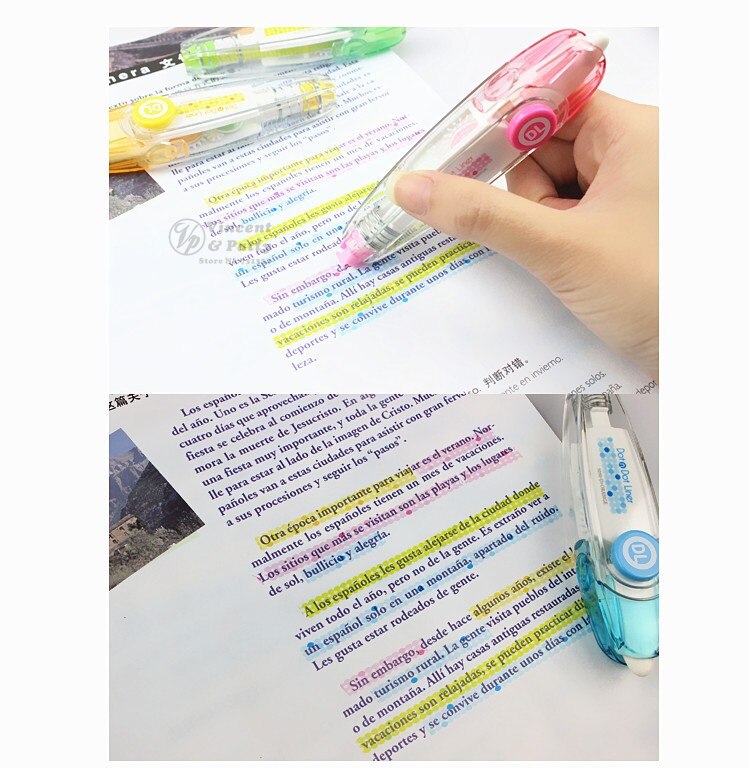 mera
lle para estar al
pañoles van a estas ciudades para asistir con gran fervor
a sus procesiones y seguir los "pasos".
Otra época importante para viajar es el verano. Nor-
malmente los españoles tienen un mes de vacaciones.
Los sitios que más se visitan son las playas y los lugares
de sol, bullicio y alegría.
A los españoles les gusta alejarse
viven todo el año, pero no de la
un español solo en una
Les gusta estar rodeados
Sin embargo, de
mado turismo rural. La gente visita pueblos
o de montaña. Allí hay casas antiguas restauradas
vacaciones son relajadas, se pueden practicar
deportes y se convive durante unos días con
leza.
DL
DL
Vincent
& Par
Store No
判断对错。
ente en invierno.
nes solos.
这篇关于
Los españo
del año. Uno es la Se
cuatro días que aprovechan
fiesta se celebra al comienzo de
mora la muerte de Jesucristo. En alg
una fiesta muy importante, y toda la gente
lle para estar al lado de la imagen de Cristo. Muc
pañoles van a estas ciudades para asistir con gran fervo
a sus procesiones y seguir los "pasos".
Otra época importante para viajar es el verano. Nor-
malmente los españoles tienen un mes de vacaciones.
Los sitios que más se visitan son las playas y los lugares
de sol, bullicio y alegría.
A los españoles les gusta alejarse de la ciudad donde
viven todo el año, pero no de la gente. Es extraño ver a
un español solo en una montaña, apartado del ruido.
Les gusta estar rodeados de gente.
Sin embargo, desde hace algunos años, existe el l
mado turismo rural. La gente visita pueblos del int
o de montaña. Allí hay casas antiguas restauradas
vacaciones son relajadas, se pueden practicar di
deportes y se convive durante unos días con l
Dot & Dot Liner
DL